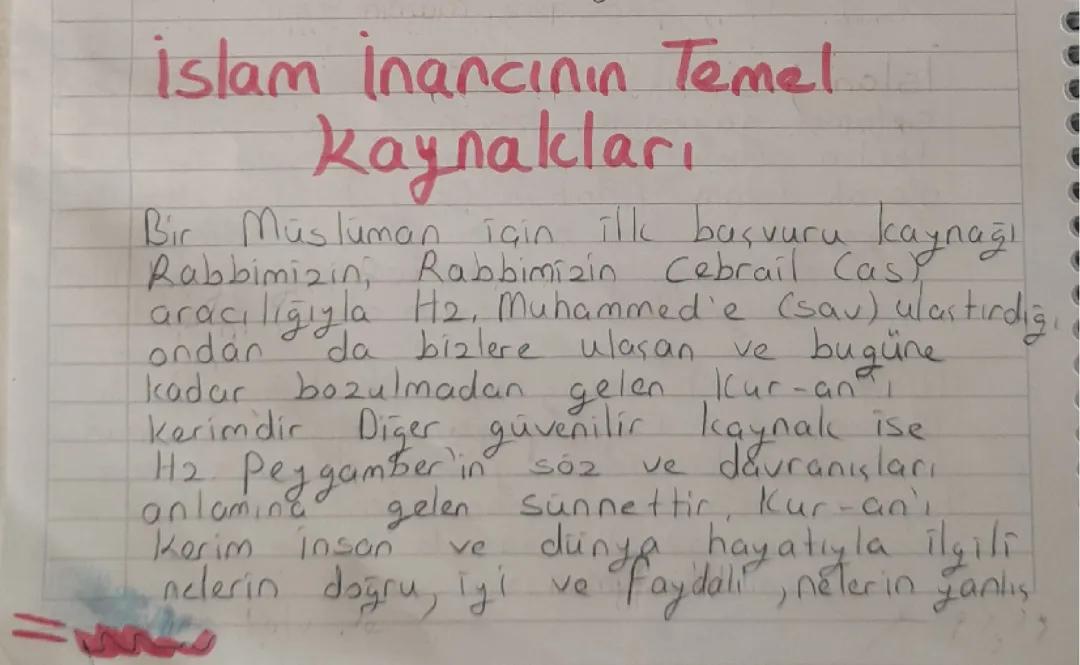 İslam İnancının Temel
Kaynakları
Bir Müslüman için ilk başvuru kaynağı
Rabbimizin, Rabbimizin Cebrail (as)
aracılığıyla Hz, Muhammed'e (sav) ulaştırdığı,
ondan da bizlere ulaşan ve bugüne
kadar bozulmadan gelen Kur-an'ı
kerimdir Diğer güvenilir kaynak ise
Hz Peygamber'in söz ve davranışları
anlamına gelen sünnettir. Kur-an'ı
Kerim insan ve dünya hayatıyla ilgili
nelerin doğru, iyi ve faydalı, nelerin yanlış